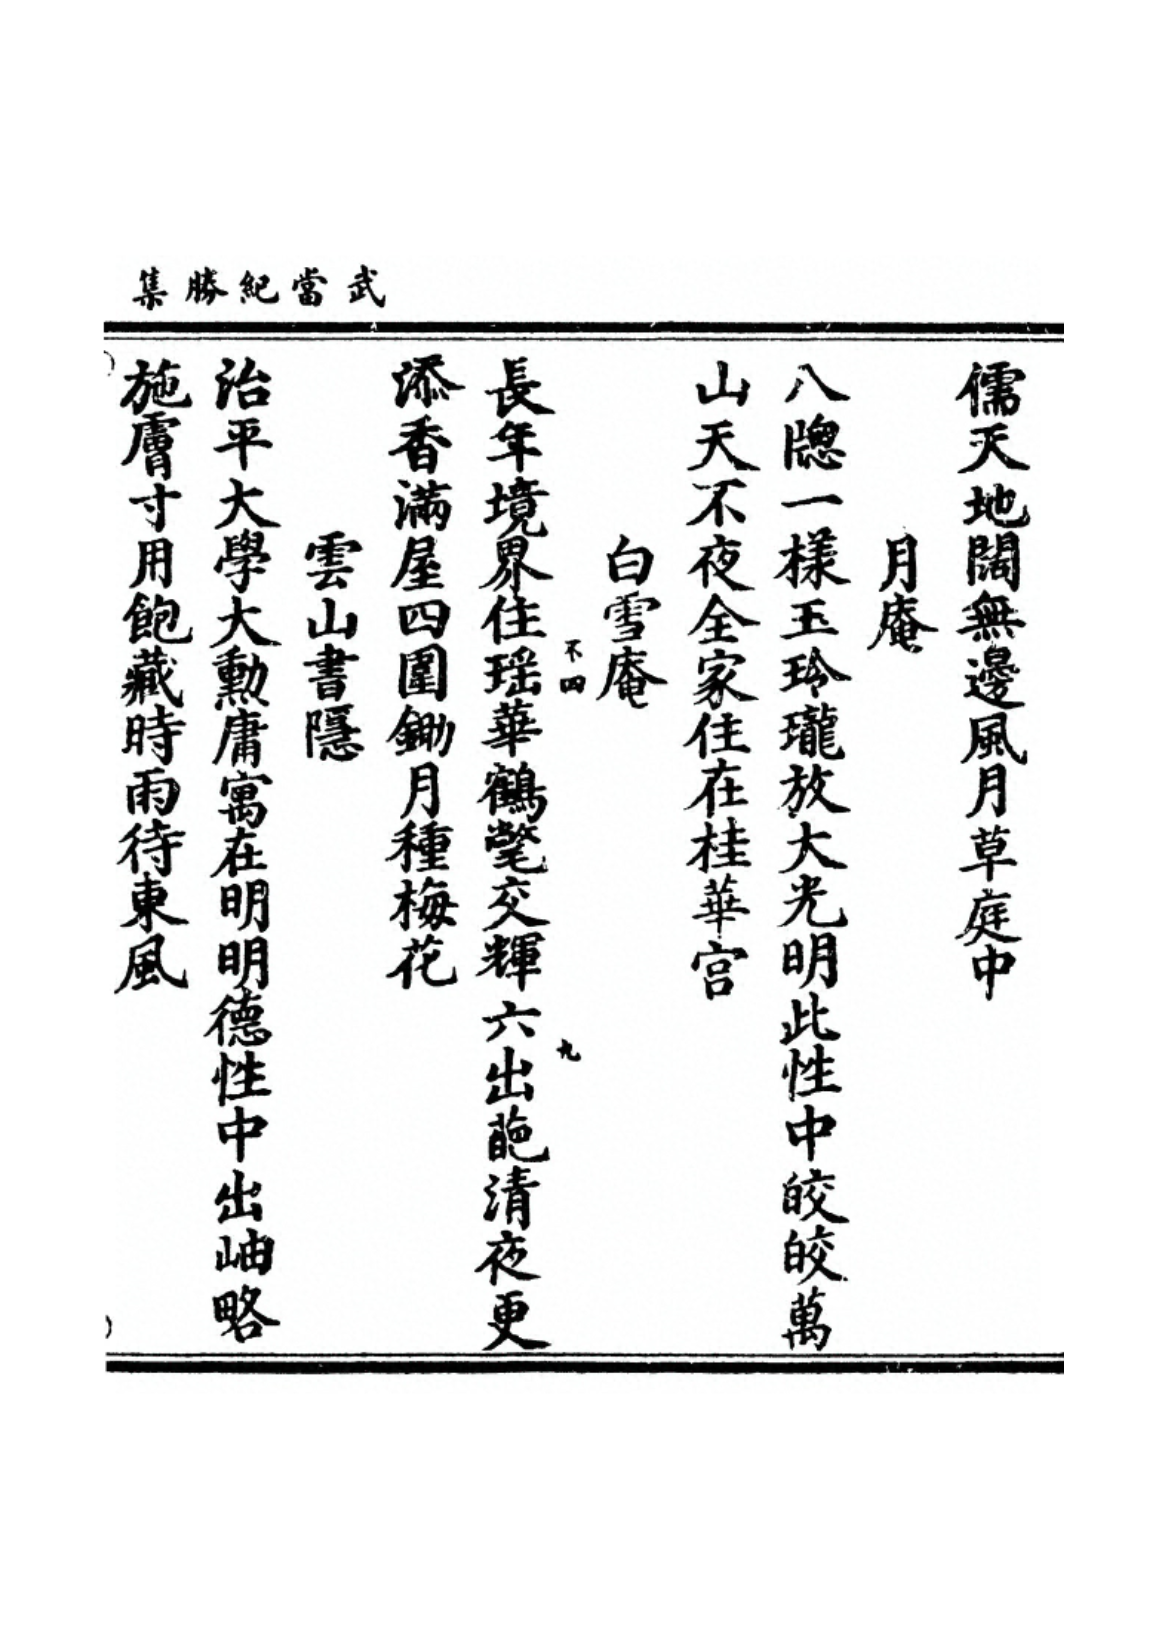 武當紀勝集
儒天地闊無邊風月草庭中
月庵
八牎一樣玉玲瓏放大光明此性中皎皎萬
山天不夜全家住在桂華宮
白雪庵
不四
九
長年境界住瑶華鶴氅交輝六出葩清夜更
添香滿屋四圍鋤月種梅花
雲山書隱
治平大學大勲庸寓在明明德性中出岫略
施膚寸用飽藏時雨待東風